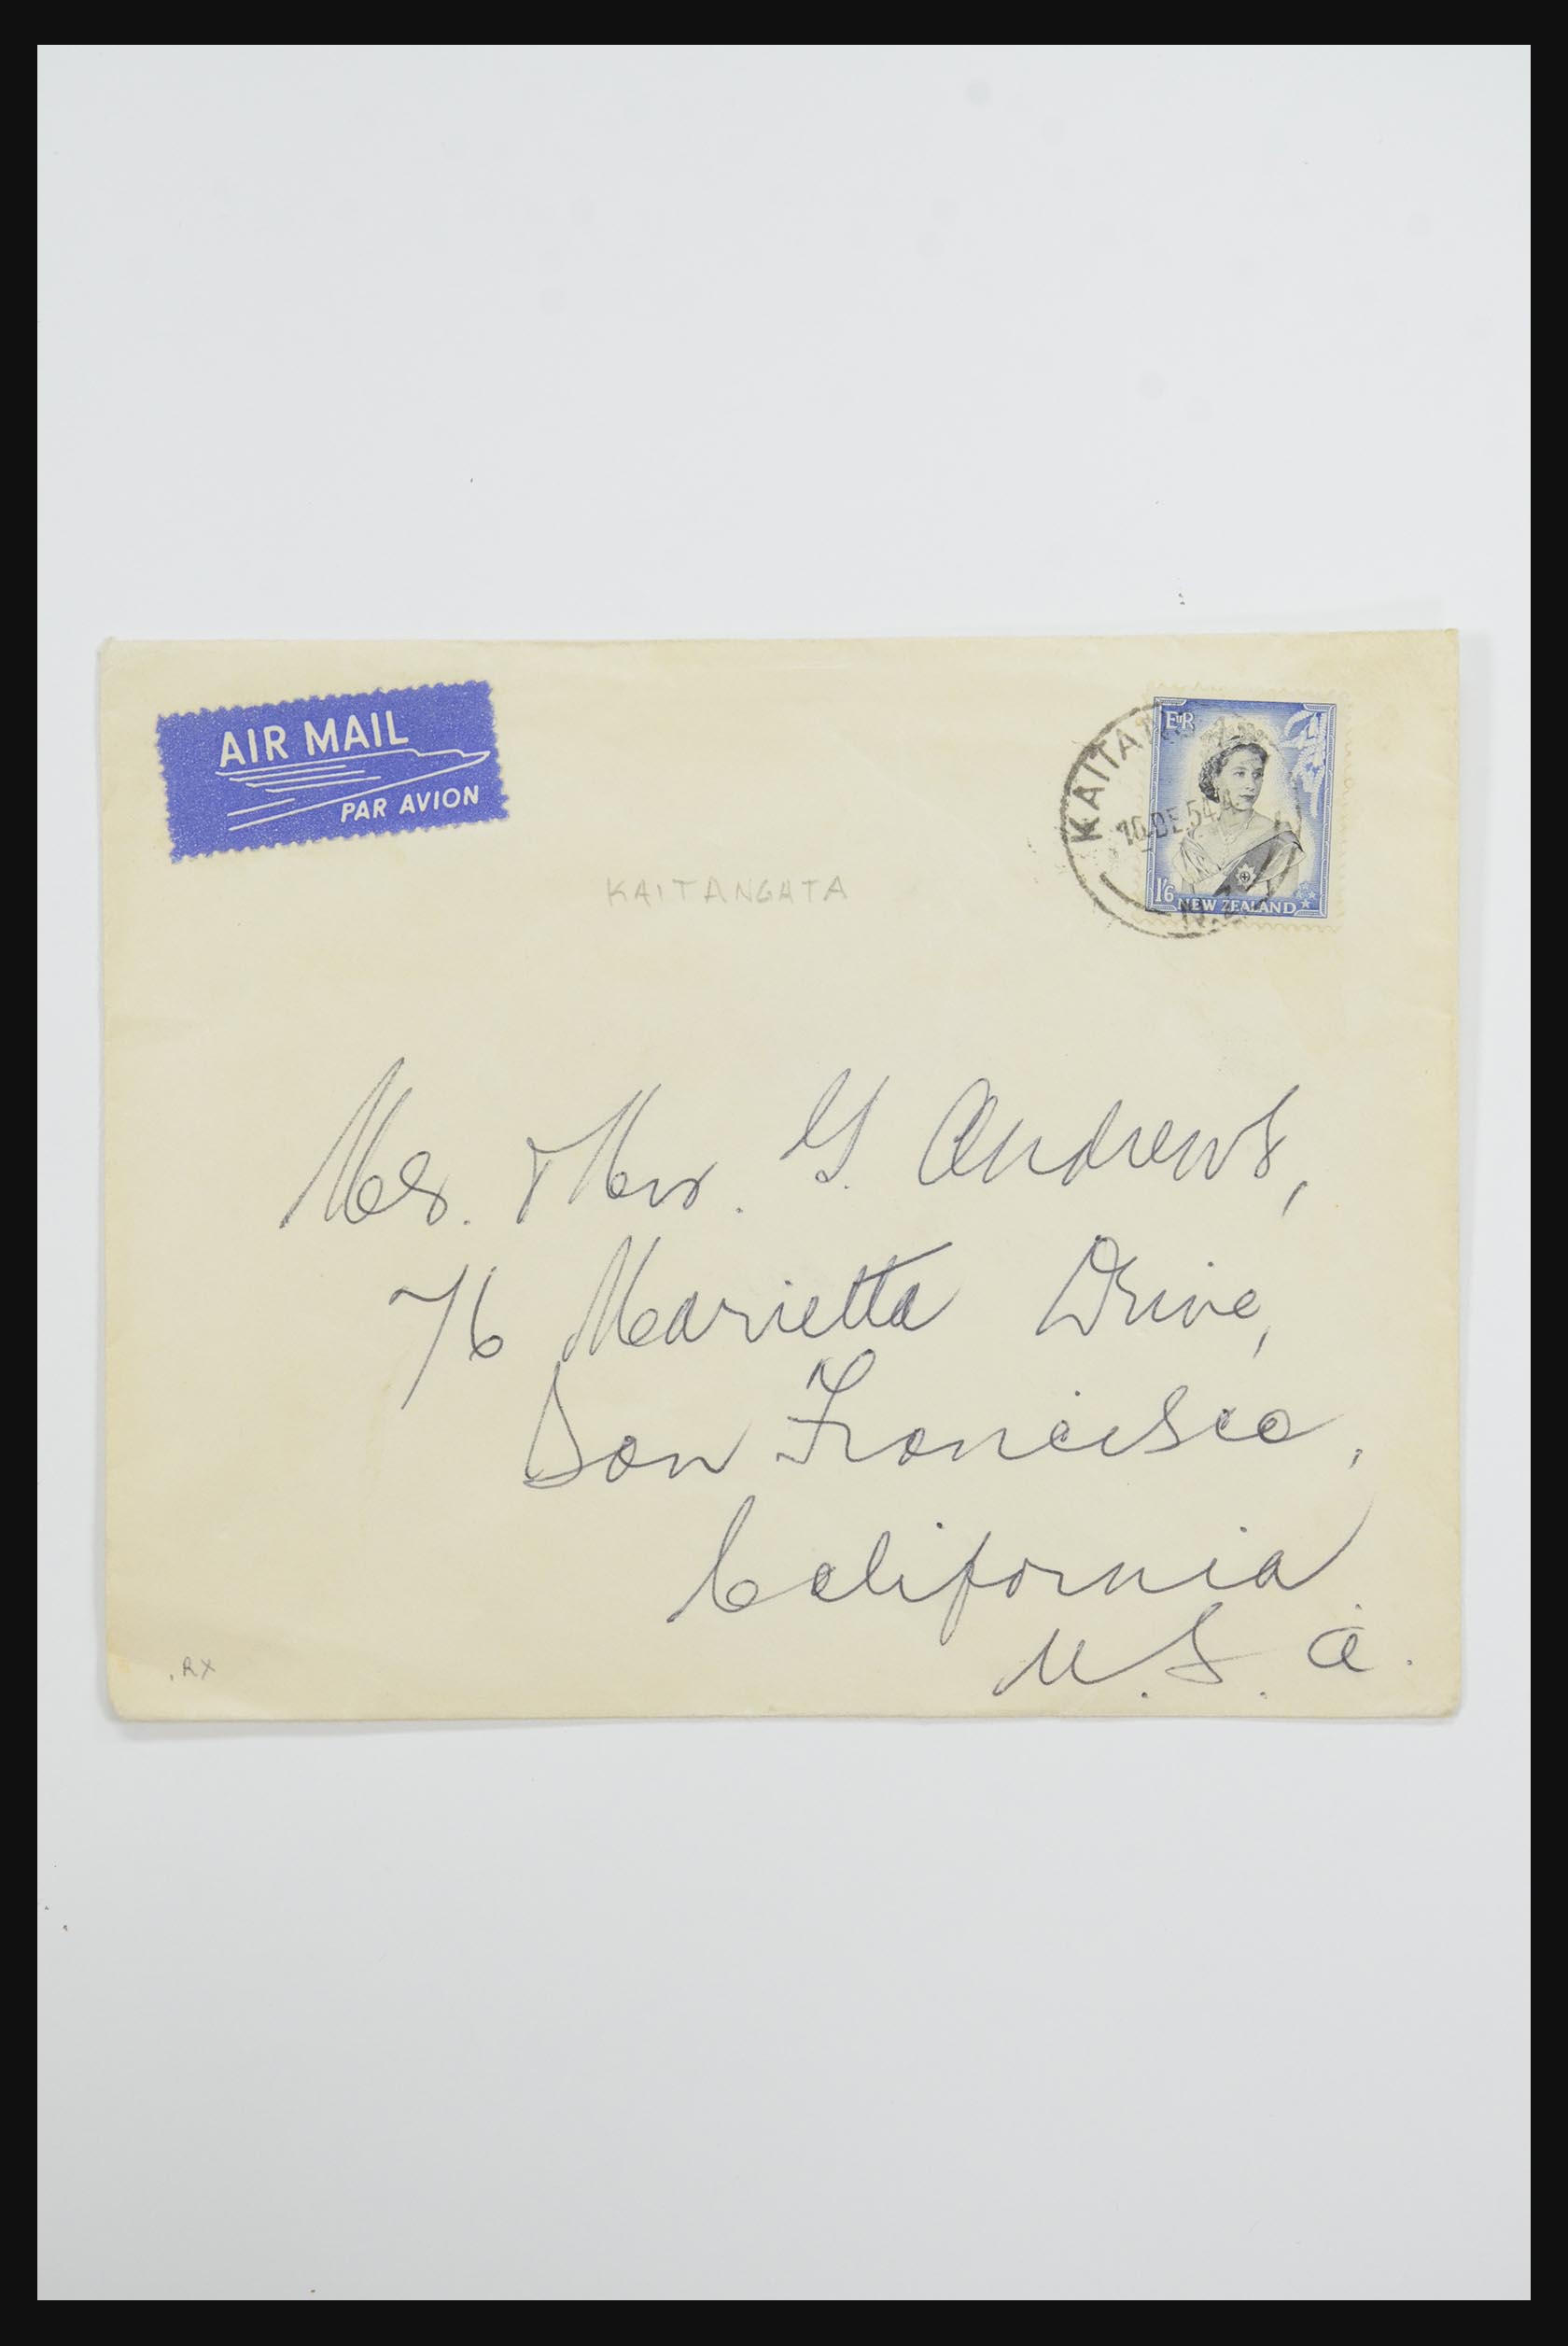 AIR MAIL
PAR AVION
KAITANGATA
10 DE 54
N.Z.
E II R
1'6 NEW ZEALAND
KAITANGATA
Mr. & Mrs. G. Andrews,
76 Marietta Drive,
San Francisco,
California
U.S.A.
RX